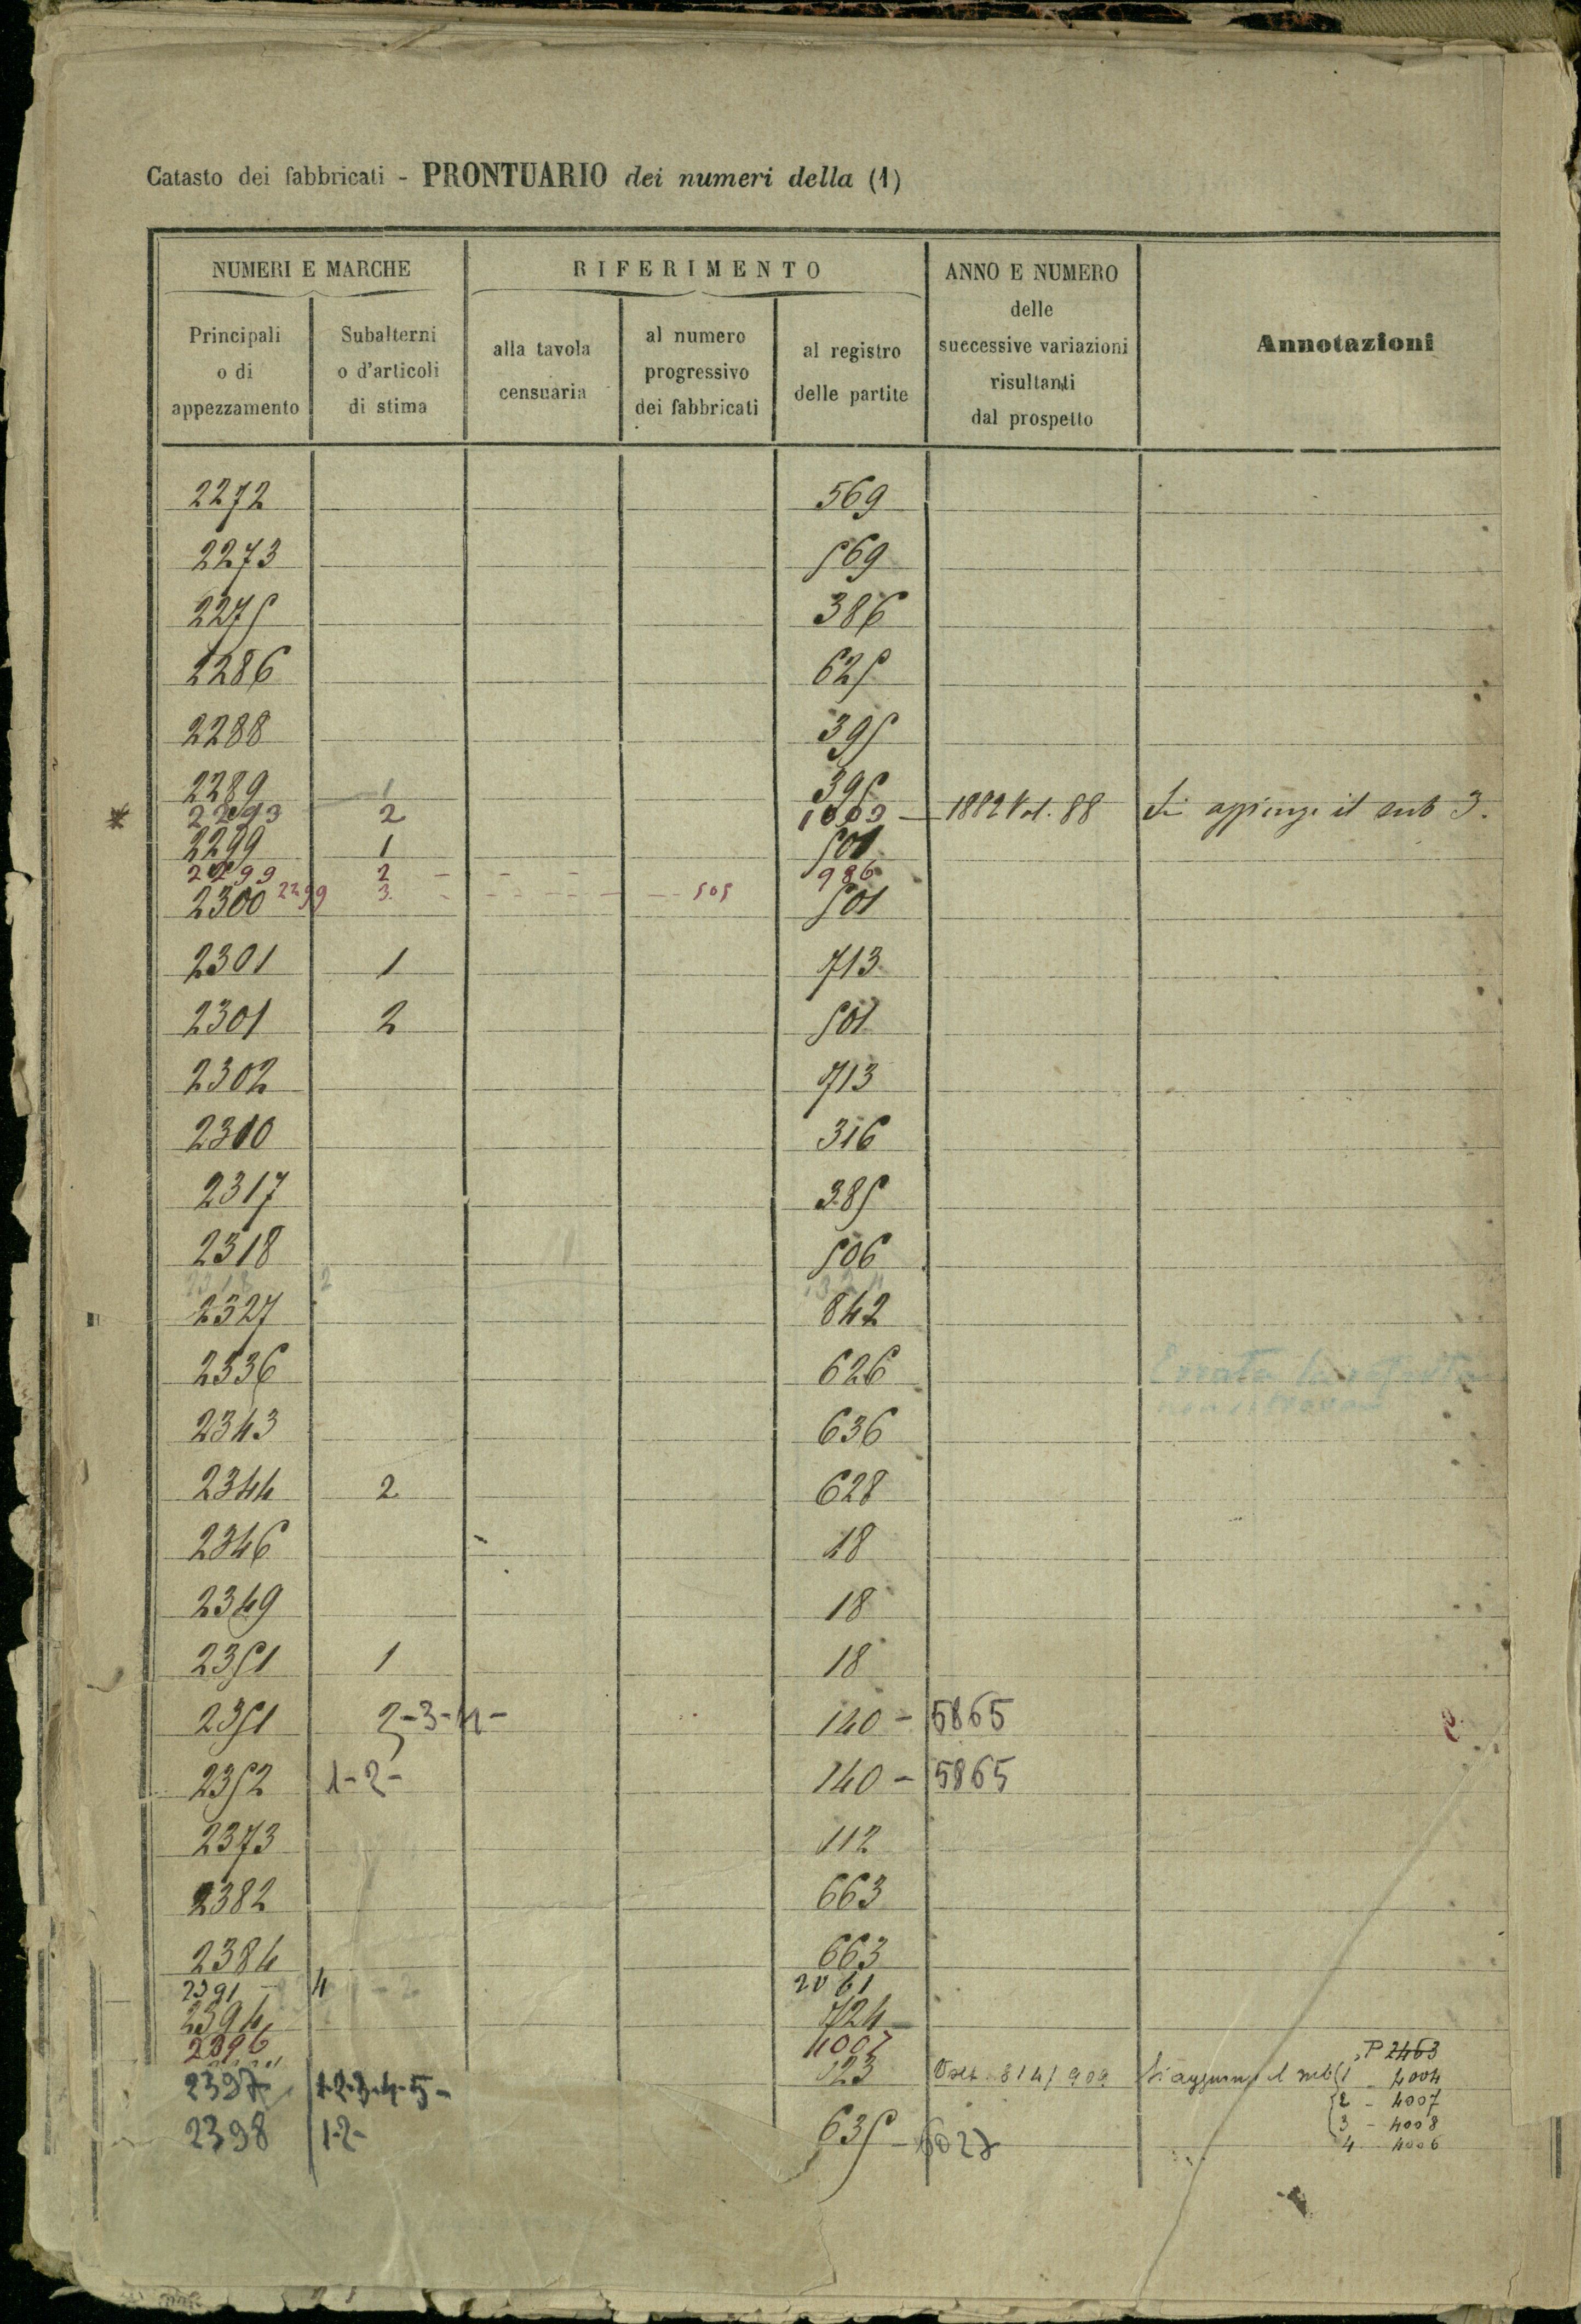 Catasto dei fabbricati - PRONTUARIO dei numeri della (1)
NUMERI E MARCHE
RIFERIMENTO
ANNO E NUMERO
delle
successive variazioni
risultanti
dal prospetto
Annotazioni
Principali
o di
appezzamento
Subalterni
o d'articoli
di stima
alla tavola
censuaria
al numero
progressivo
dei fabbricati
al registro
delle partite
2272 569
2273 569
2275 386
2286 625
2288 395
2289 1 395
2293 2 1003 - 1882 Vol. 88 Si aggiunge il sub 3.
2299 1 501
2299 2 986
2300 2299 3 505 501
2301 1 713
2301 2 501
2302 713
2310 316
2317 385
2318 506
2327 842
2336 626 Errata la
2343 636
2344 2 628
2346 18
2349 18
2351 1 18
2351 2-3-4- 140 - 5865
2352 1-2- 140 - 5865
2373 112
2382 663
2384 663
2391 - 4 2061
2394 724
2396 4007
P 2463
2397 1-2-3-4-5- 123 814/909 Si aggiunge il sub 1 - 4004
2 - 4007
3 - 4008
2398 1-2- 635 - 6027
4 - 4006